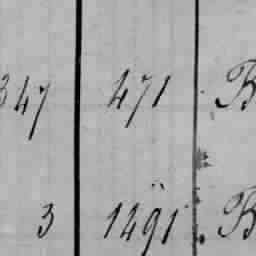 347 471 B
3 1491 B